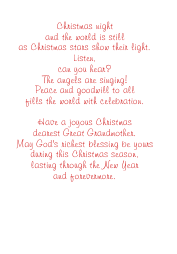 Christmas night
and the world is still
as Christmas stars show their light.
Listen,
can you hear?
The angels are singing!
Peace and goodwill to all
fills the world with celebration.

Have a joyous Christmas
dearest Great Grandmother.
May God's richest blessing be yours
during this Christmas season,
lasting through the New Year
and forevermore.